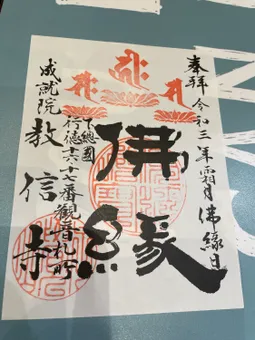 奉拝 令和三年霜月佛縁日
佛縁
下總國
行徳 番観音札所
成就院
教信寺